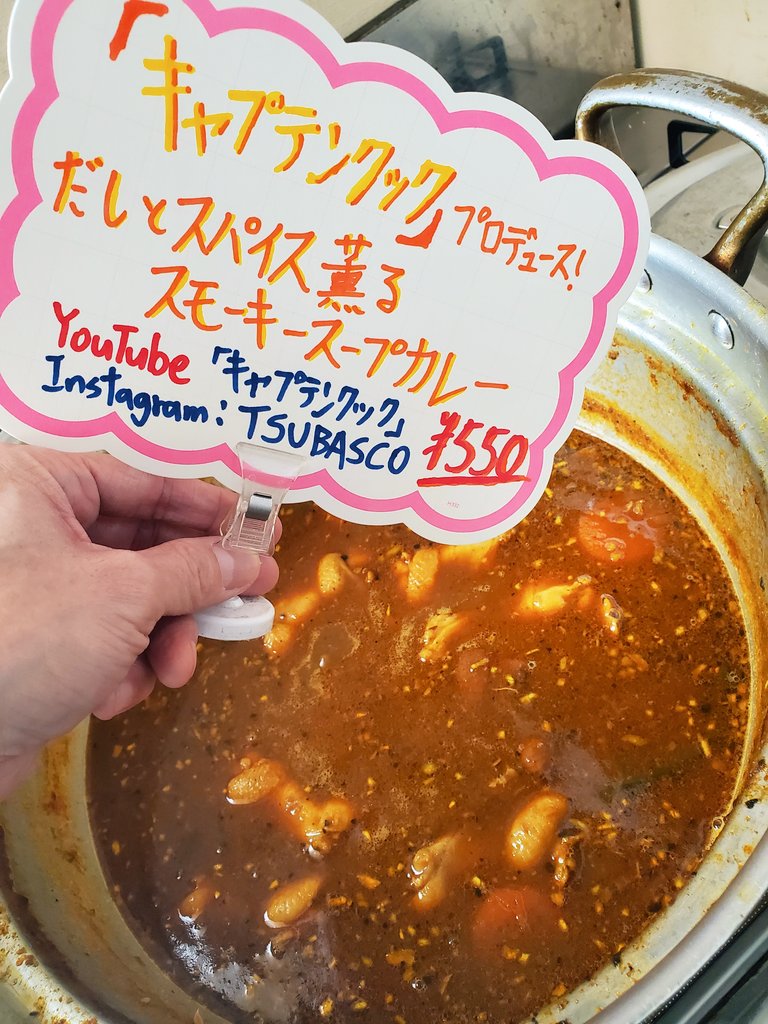 「キャプテンクック」プロデュース!
だしとスパイス薫る
スモーキースープカレー
YouTube「キャプテンクック」
Instagram: TSUBASCO ¥550